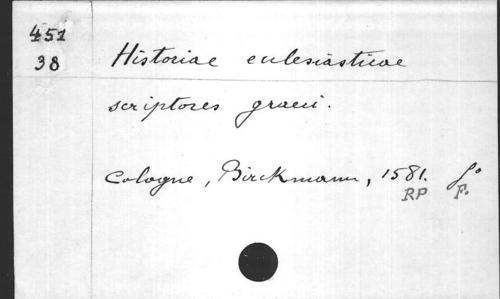 451
38
Historiae eclesiasticae
scriptores graeci.
Cologne, Birckmann, 1581. fº
RP P.